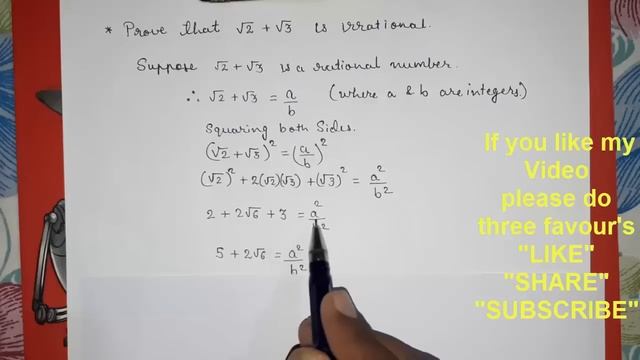 * Prove that √2 + √3 is irrational.
Suppose √2 + √3 is a rational number.
∴ √2 + √3 = a/b (where a & b are integers)
Squaring both sides.
(√2 + √3)² = (a/b)²
(√2)² + 2(√2)(√3) + (√3)² = a²/b²
2 + 2√6 + 3 = a²/b²
5 + 2√6 = a²/b²
If you like my
Video
please do
three favour's
"LIKE"
"SHARE"
"SUBSCRIBE"